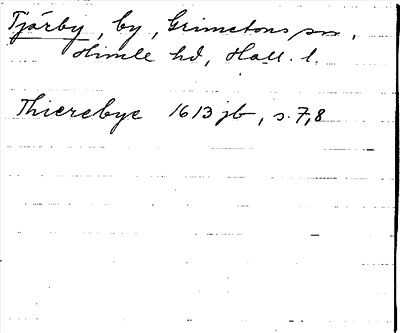 Tjärby, by, Grimetons sn,
Himle hd, Hall. l.
Thierebye 1613 jb, s. 7, 8